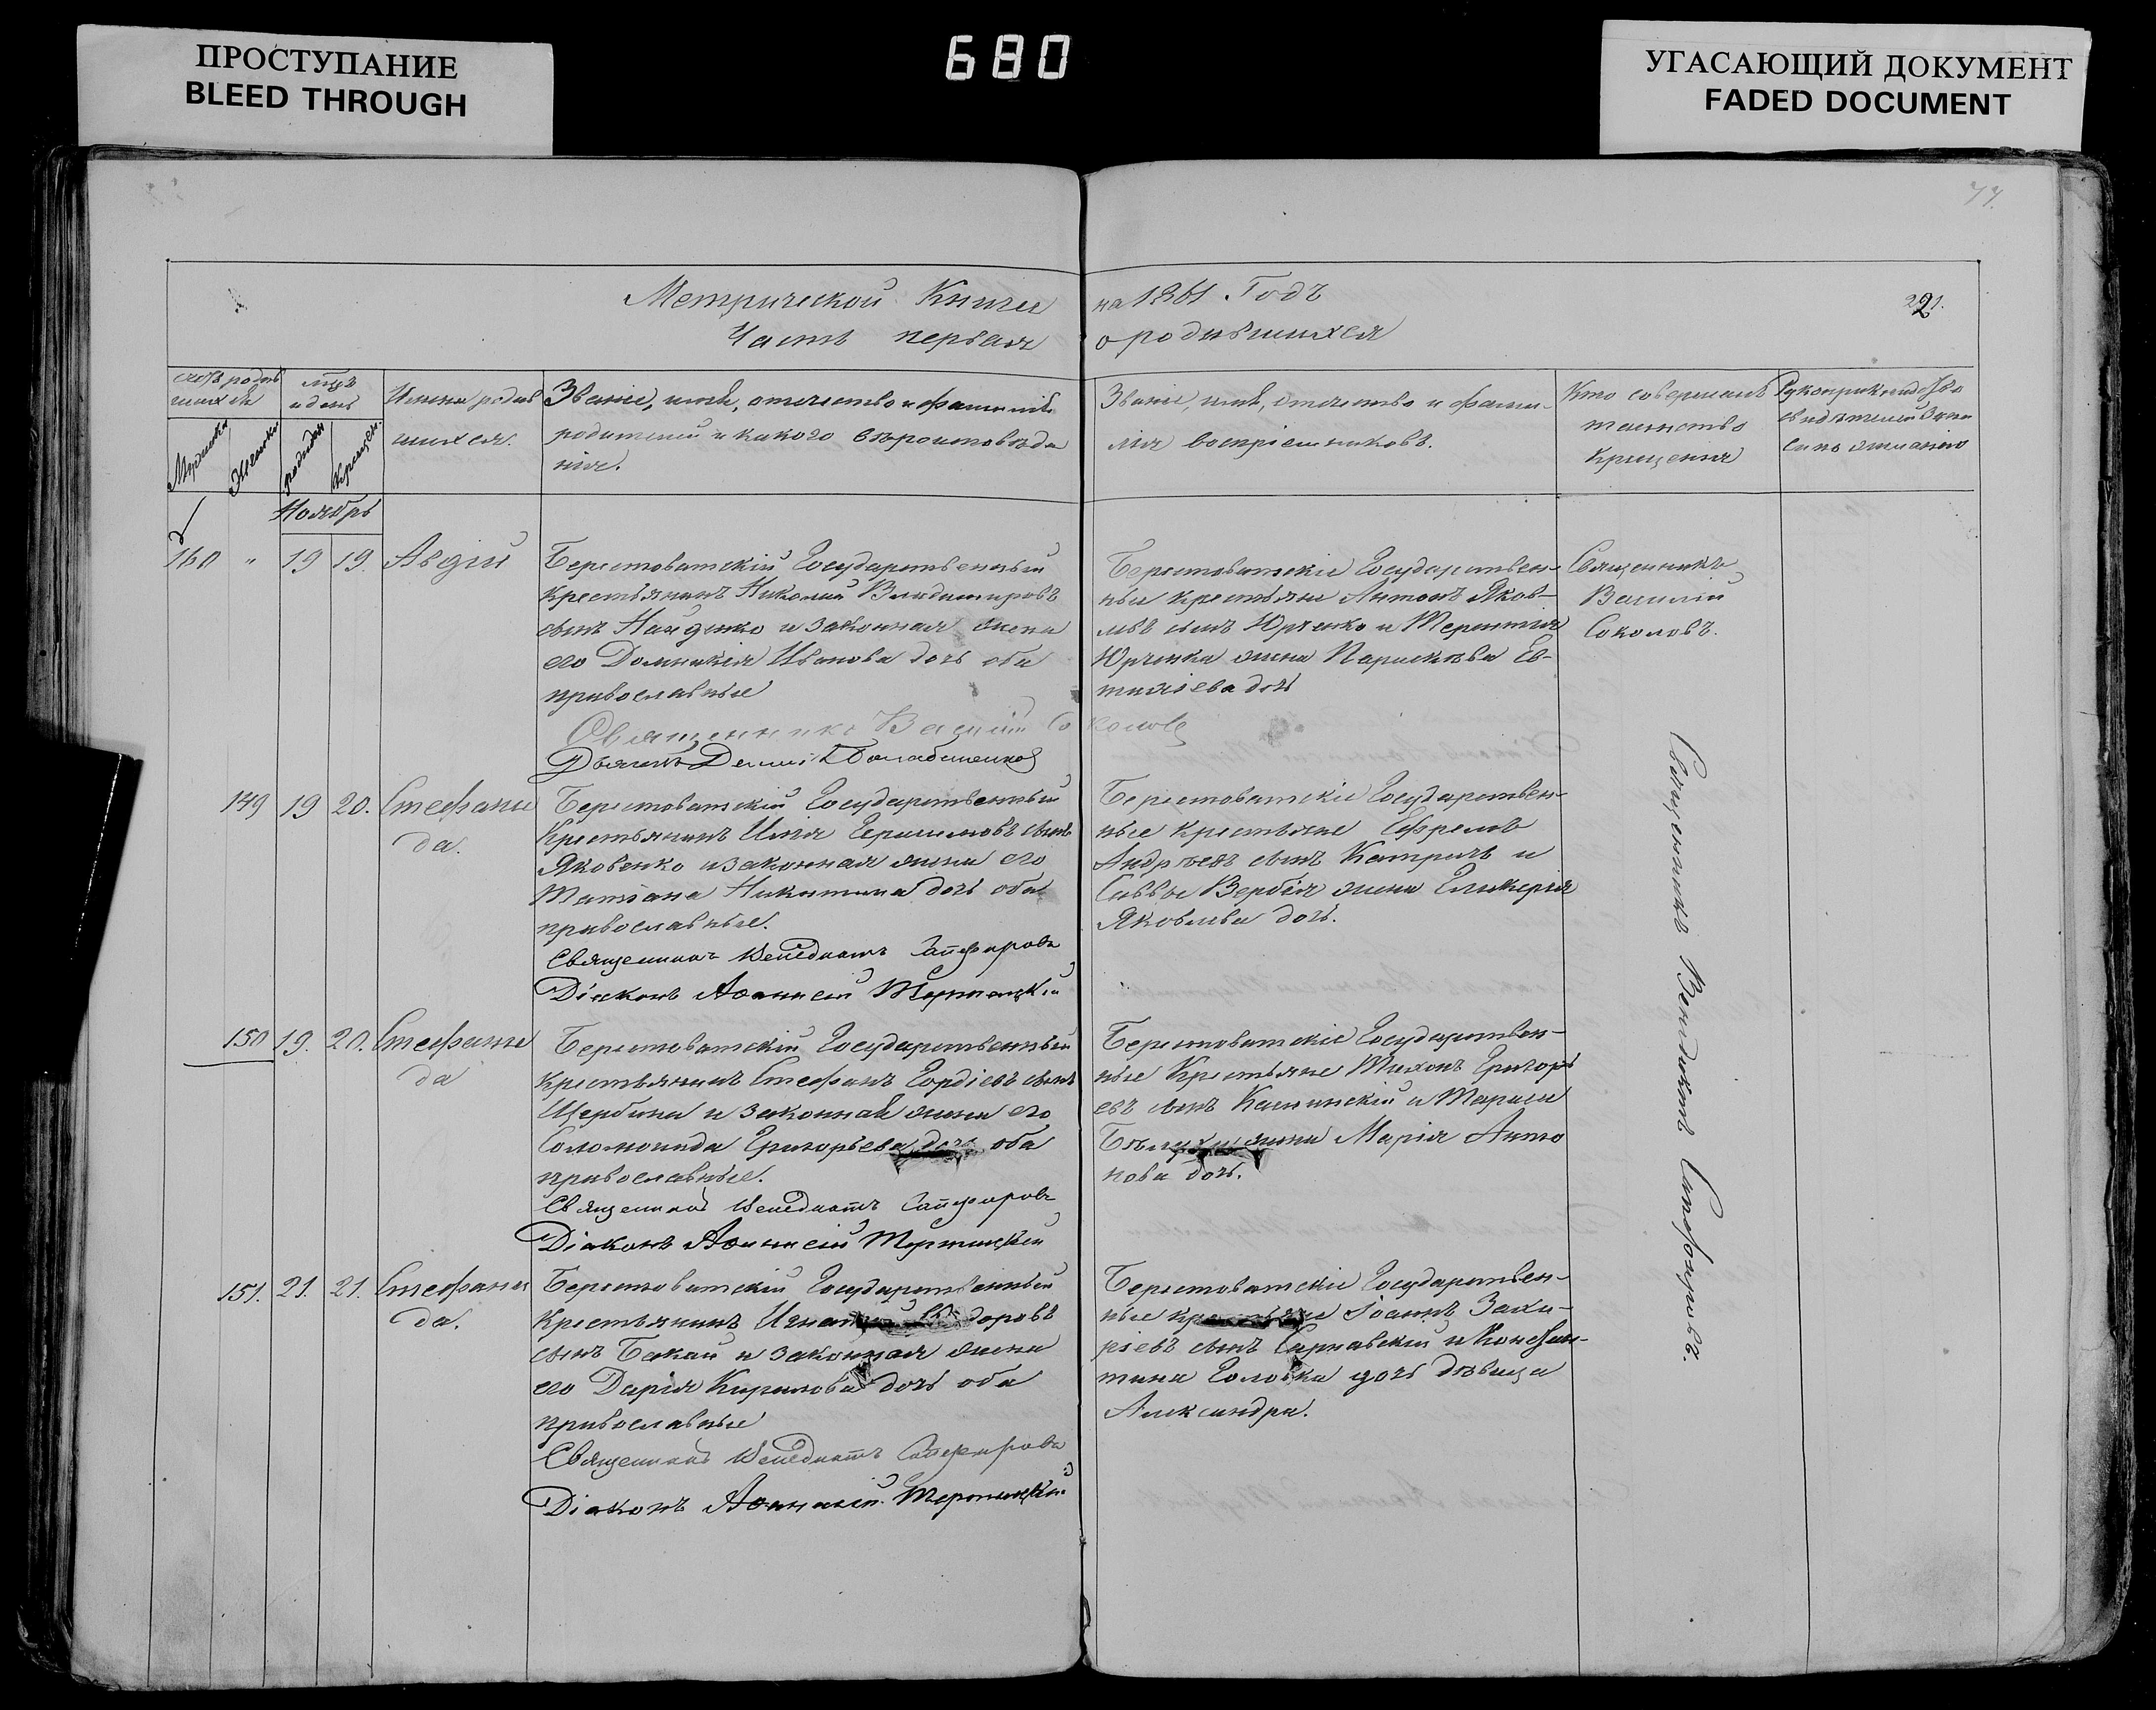 ПРОСТУПАНИЕ
BLEED THROUGH
680
УГАСАЮЩИЙ ДОКУМЕНТ
FADED DOCUMENT
77.
Метрической Книги на 1861 Годъ
221.
Часть первая о родившихся
счетъ родив
шихся
Мѣсяцъ
и день
Имена родив
шихся.
Мужеска
Женска
рожденія
Крещен.
Званіе, имя, отечество и фамилія
родителей и какого вѣроисповѣда
нія.
Званіе, имя, отечество и фами-
лія воспріемниковъ.
Кто совершалъ
таинство
Крещенія
Рукоприкладство
свидѣтелей записи
по желанію
Ноябрь
160 " 19 19. Авдій
Берестоватскій Государственный
крестьянинъ Николай Владимировъ
сынъ Найденко и законная жена
его Домникія Иванова дочь оба
православные
Священникъ Василій Соколовъ
Дьячекъ
Берестоватскіе Государствен-
ные крестьяне Антонъ Яков-
левъ сынъ Юрченко и Терентія
Юрченка жена Параскева Ев-
тихіева дочь
Священникъ
Василій
Соколовъ.
149 19 20. Стефани
да.
Берестоватскій Государственный
Крестьянинъ Илія Герасимовъ сынъ
Яковенко и законная жена его
Татіана Никитина дочь оба
православные.
Священникъ Венедиктъ Сапфировъ
Діаконъ Афанасій
Берестоватскіе Государствен-
ные крестьяне Ефремъ
Андреевъ сынъ Катричъ и
Саввы Вербія жена Гликерія
Яковлева дочь.
150 19. 20. Стефани
да
Берестоватскій Государственный
крестьянинъ Стефанъ Гордіевъ сынъ
Щербина и законная жена его
Соломонида Григорьева дочь оба
православные.
Священникъ Венедиктъ Сапфировъ
Діаконъ Афанасій
Берестоватскіе Государствен-
ные Крестьяне Тихонъ Григорь
евъ сынъ Калинскій и Тараса
жена Марія Анто
нова дочь.
151. 21. 21. Стефани
да.
Берестоватскій Государственный
Крестьянинъ Игнатій
сынъ Бакай и законная жена
его Дарія Кирилова дочь оба
православные
Священникъ Венедиктъ Сапфировъ
Діаконъ Афанасій
Берестоватскіе Государствен-
ные крестьяне Іоаннъ Заха-
ріевъ сынъ Сарнавскій и Констан-
тина Головка дочь дѣвица
Александра.
Священникъ Венедиктъ Сапфировъ.